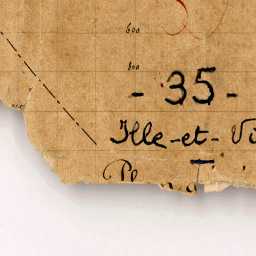 600
800
- 35 -
Ille-et-Vi